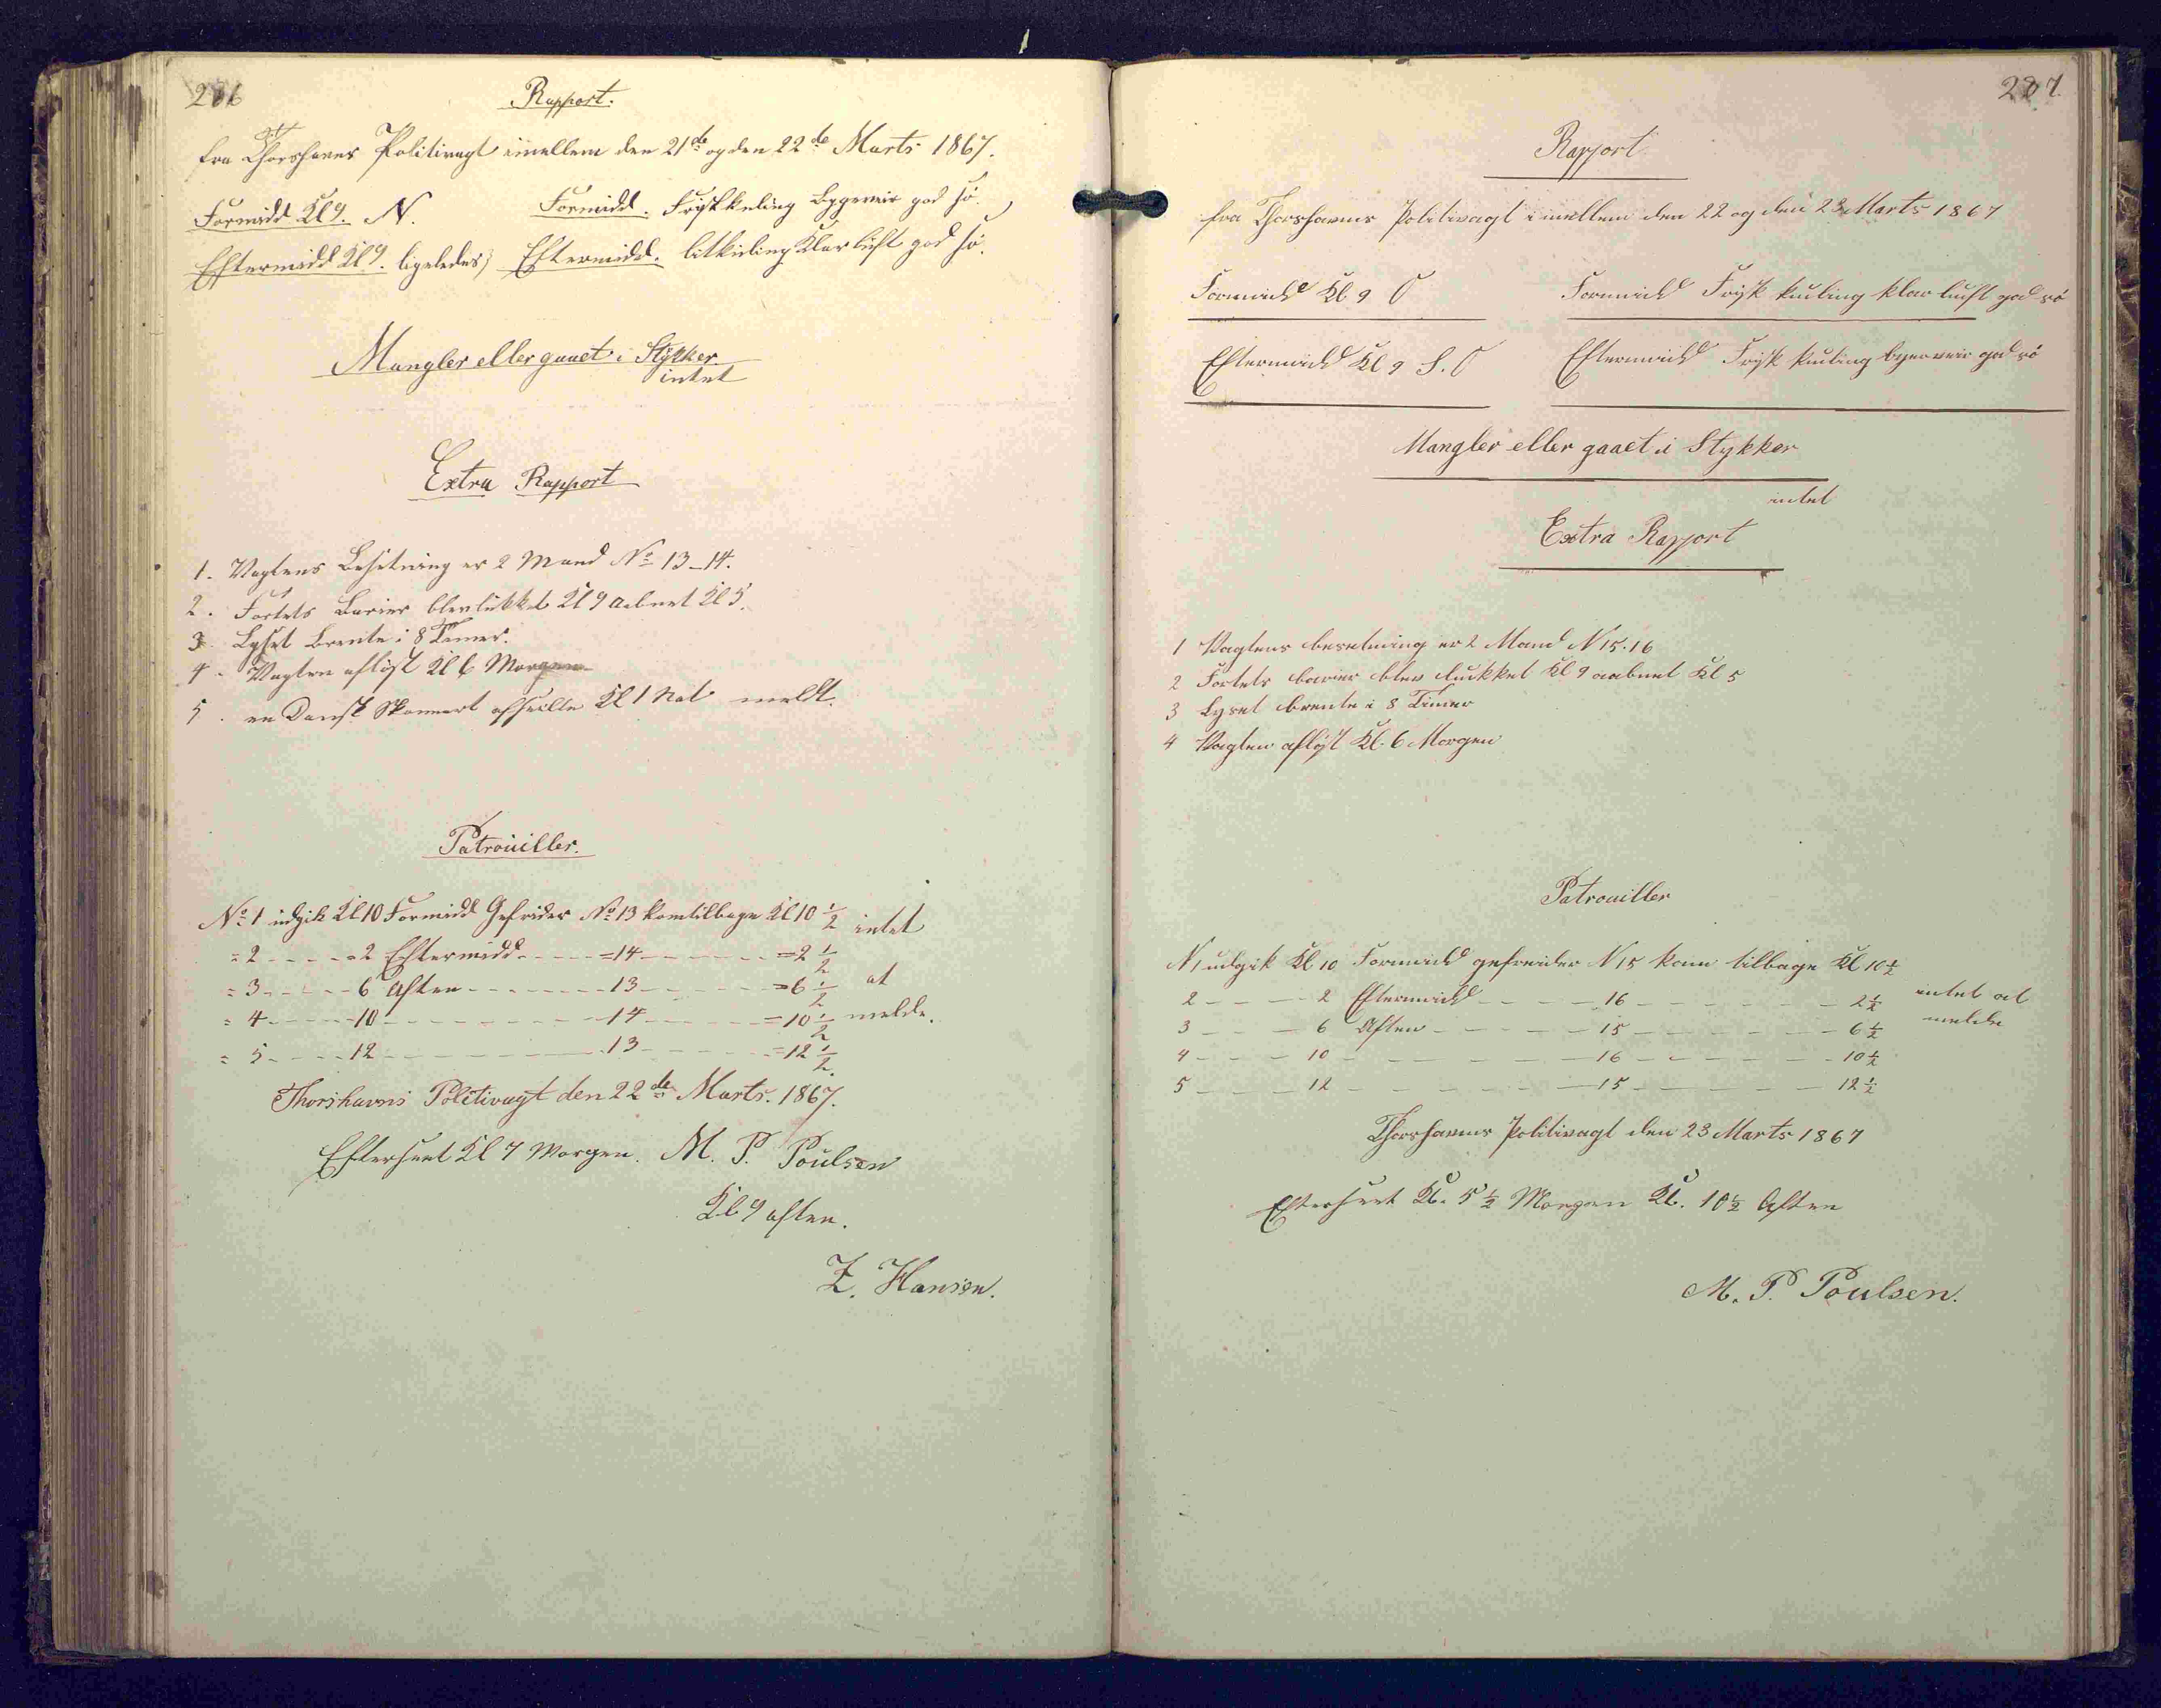 286
Rapport.
fra Thorshavns Politivagt imellem den 21de og den 22de Marts 1867.
Formidd Kl 9. N. Formidd. Friskkuling Bygeveir god sö.
Eftermidd Kl 9. ligeledes, Eftermidd. litkuling Klar luft god sö.
Mangler eller gaaet i Stykker
intet
Extra Rapport
1. Vagtens Besetning er 2 Mand No 13-14.
2. Fortets Barier blev lukket Kl 9 aabnet Kl 5.
3. Lyset brente i 8 Timer.
4. Vagten aflöst Kl 6 Morgen
5. en Dansk Skonnert afseilte Kl 1 Nat meldt.
Patrouiller.
No 1 udgik Kl 10 Formidd Gefrider No 13 kom tilbage Kl 10 1/2 intet
= 2 - - - - = 2 Eftermidd - - - - = 14 - - - - - - = 2 1/2
= 3 - - - - 6 Aften - - - - - - - 13 - - - - - = 6 1/2 at
= 4 - - - - 10 - - - - - - - - - 14 - - - - - = 10 1/2 melde.
= 5 - - - - 12 - - - - - - - - - 13 - - - - - = 12 1/2.
Thorshavns Politivagt den 22de Marts. 1867.
Efterseet Kl 7 Morgen. M. P. Poulsen
Kl 9 aften.
Z. Hansen.
287
Rapport
fra Thorshavns Politivagt imellem den 22 og den 23 Marts 1867
Formidd Kl 9 O Formidd Frisk kuling klar luft god sö
Eftermidd Kl 9 S. O Eftermidd Frisk kuling byerveir god sö
Mangler eller gaaet i Stykker
intet
Extra Rapport
1 Vagtens besetning er 2 Mand N 15. 16
2 Fortets barier blev lukket Kl 9 aabnet Kl 5
3 Lyset brente i 8 Timer
4 Vagten aflöst Kl. 6 Morgen
Patrouiller
N 1 udgik Kl 10 Formidd gefreider N 15 kom tilbage Kl 10 1/2
2 - - - - 2 Eftermidd - - - - 16 - - - - - - 2 1/2 intet at
3 - - - 6 Aften - - - - - 15 - - - - - - 6 1/2 melde
4 - - - - 10 - - - - - - - 16 - - - - - - 10 1/2
5 - - - - 12 - - - - - - - 15 - - - - - - 12 1/2
Thorshavns Politivagt den 23 Marts 1867
Efterseet Kl. 5 1/2 Morgen Kl. 10 1/2 Aften
M. P. Poulsen.